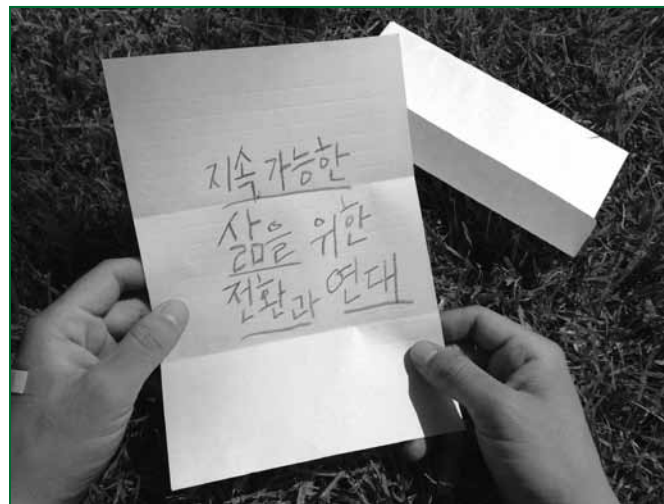 지속가능한
삶을 위한
전환과 연대